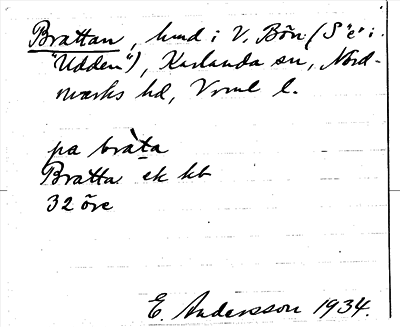 Brattan, hmd i V. Bön (S "e" i
"Udden"), Karlanda sn, Nord-
marks hd, Vrml l.
pa bràta
Bratta ek kb
32 öre
E. Andersson 1934.